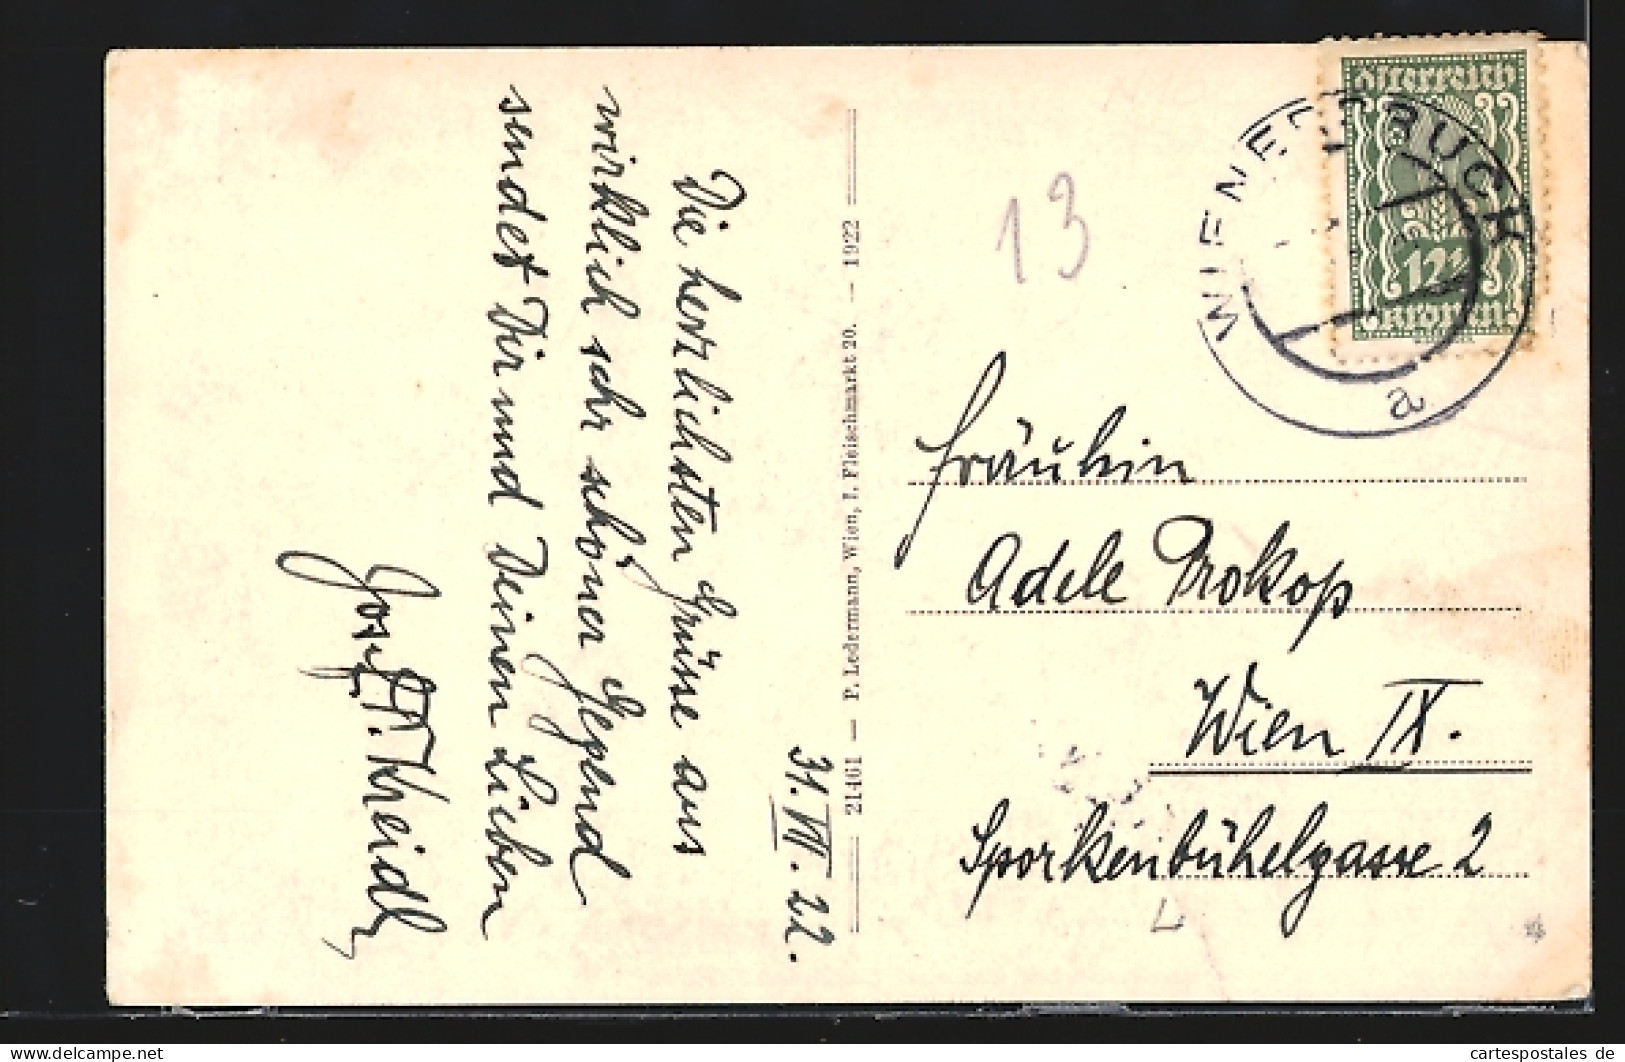 31. VII. 22.
Die herzlichsten Grüsse aus
wirklich sehr schöner Gegend
sendet Dir und Deinen Lieben
Josef Kreidl
21461 — P. Ledermann, Wien, I. Fleischmarkt 20. — 1922
13
Österreich
12½
Kronen
WIENERBRUCK
a
Fräulein
Adele Prokop
Wien IX.
Sporkenbühelgasse 2
delcampe.net
cartespostales de